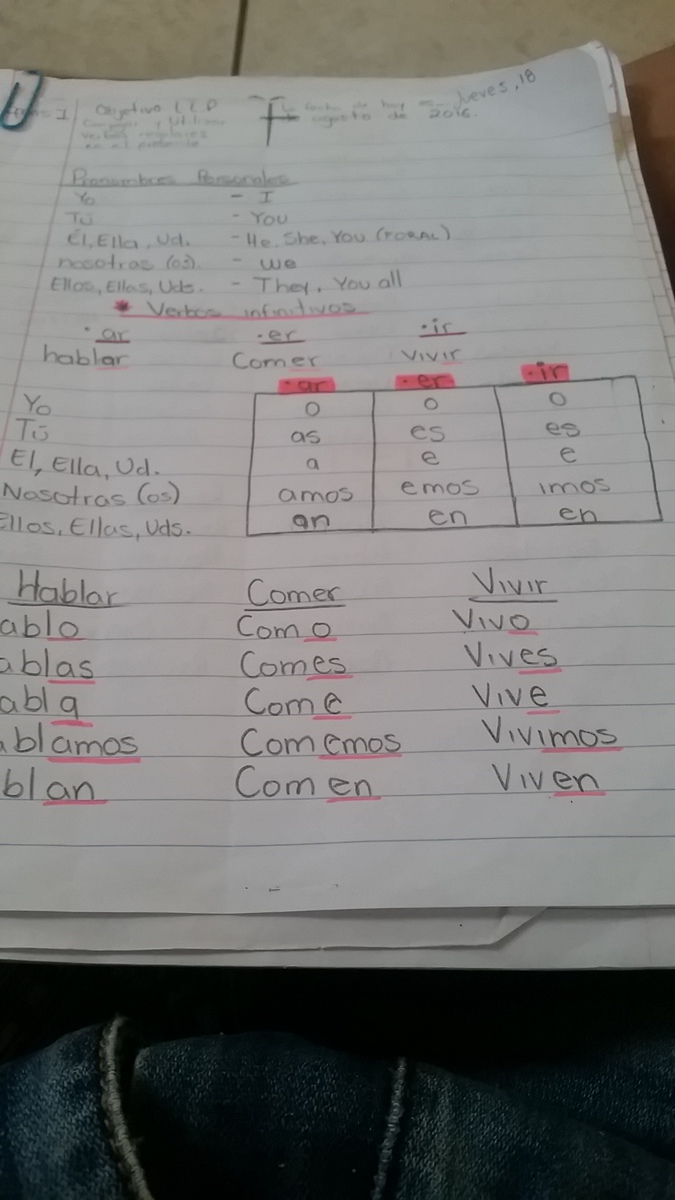 Objetivo L.L.P La fecha de hoy es Jueves, 18
y utilizar agosto de 2016.
verbos regulares
en el presente
Pronombres Personales
Yo - I
Tú - You
Él, Ella, Ud. - He, She, You (FORAL)
nosotras (os). - we
Ellos, Ellas, Uds. - They, You all
* Verbos infinitivos
·ar ·er ·ir
hablar Comer vivir
·ar ·er ·ir
Yo o o o
Tú as es es
El, Ella, Ud. a e e
Nosotras (os) amos emos imos
Ellos, Ellas, Uds. an en en
Hablar Comer Vivir
ablo Como Vivo
ablas Comes Vives
abla Come Vive
ablamos Comemos Vivimos
blan Comen Viven